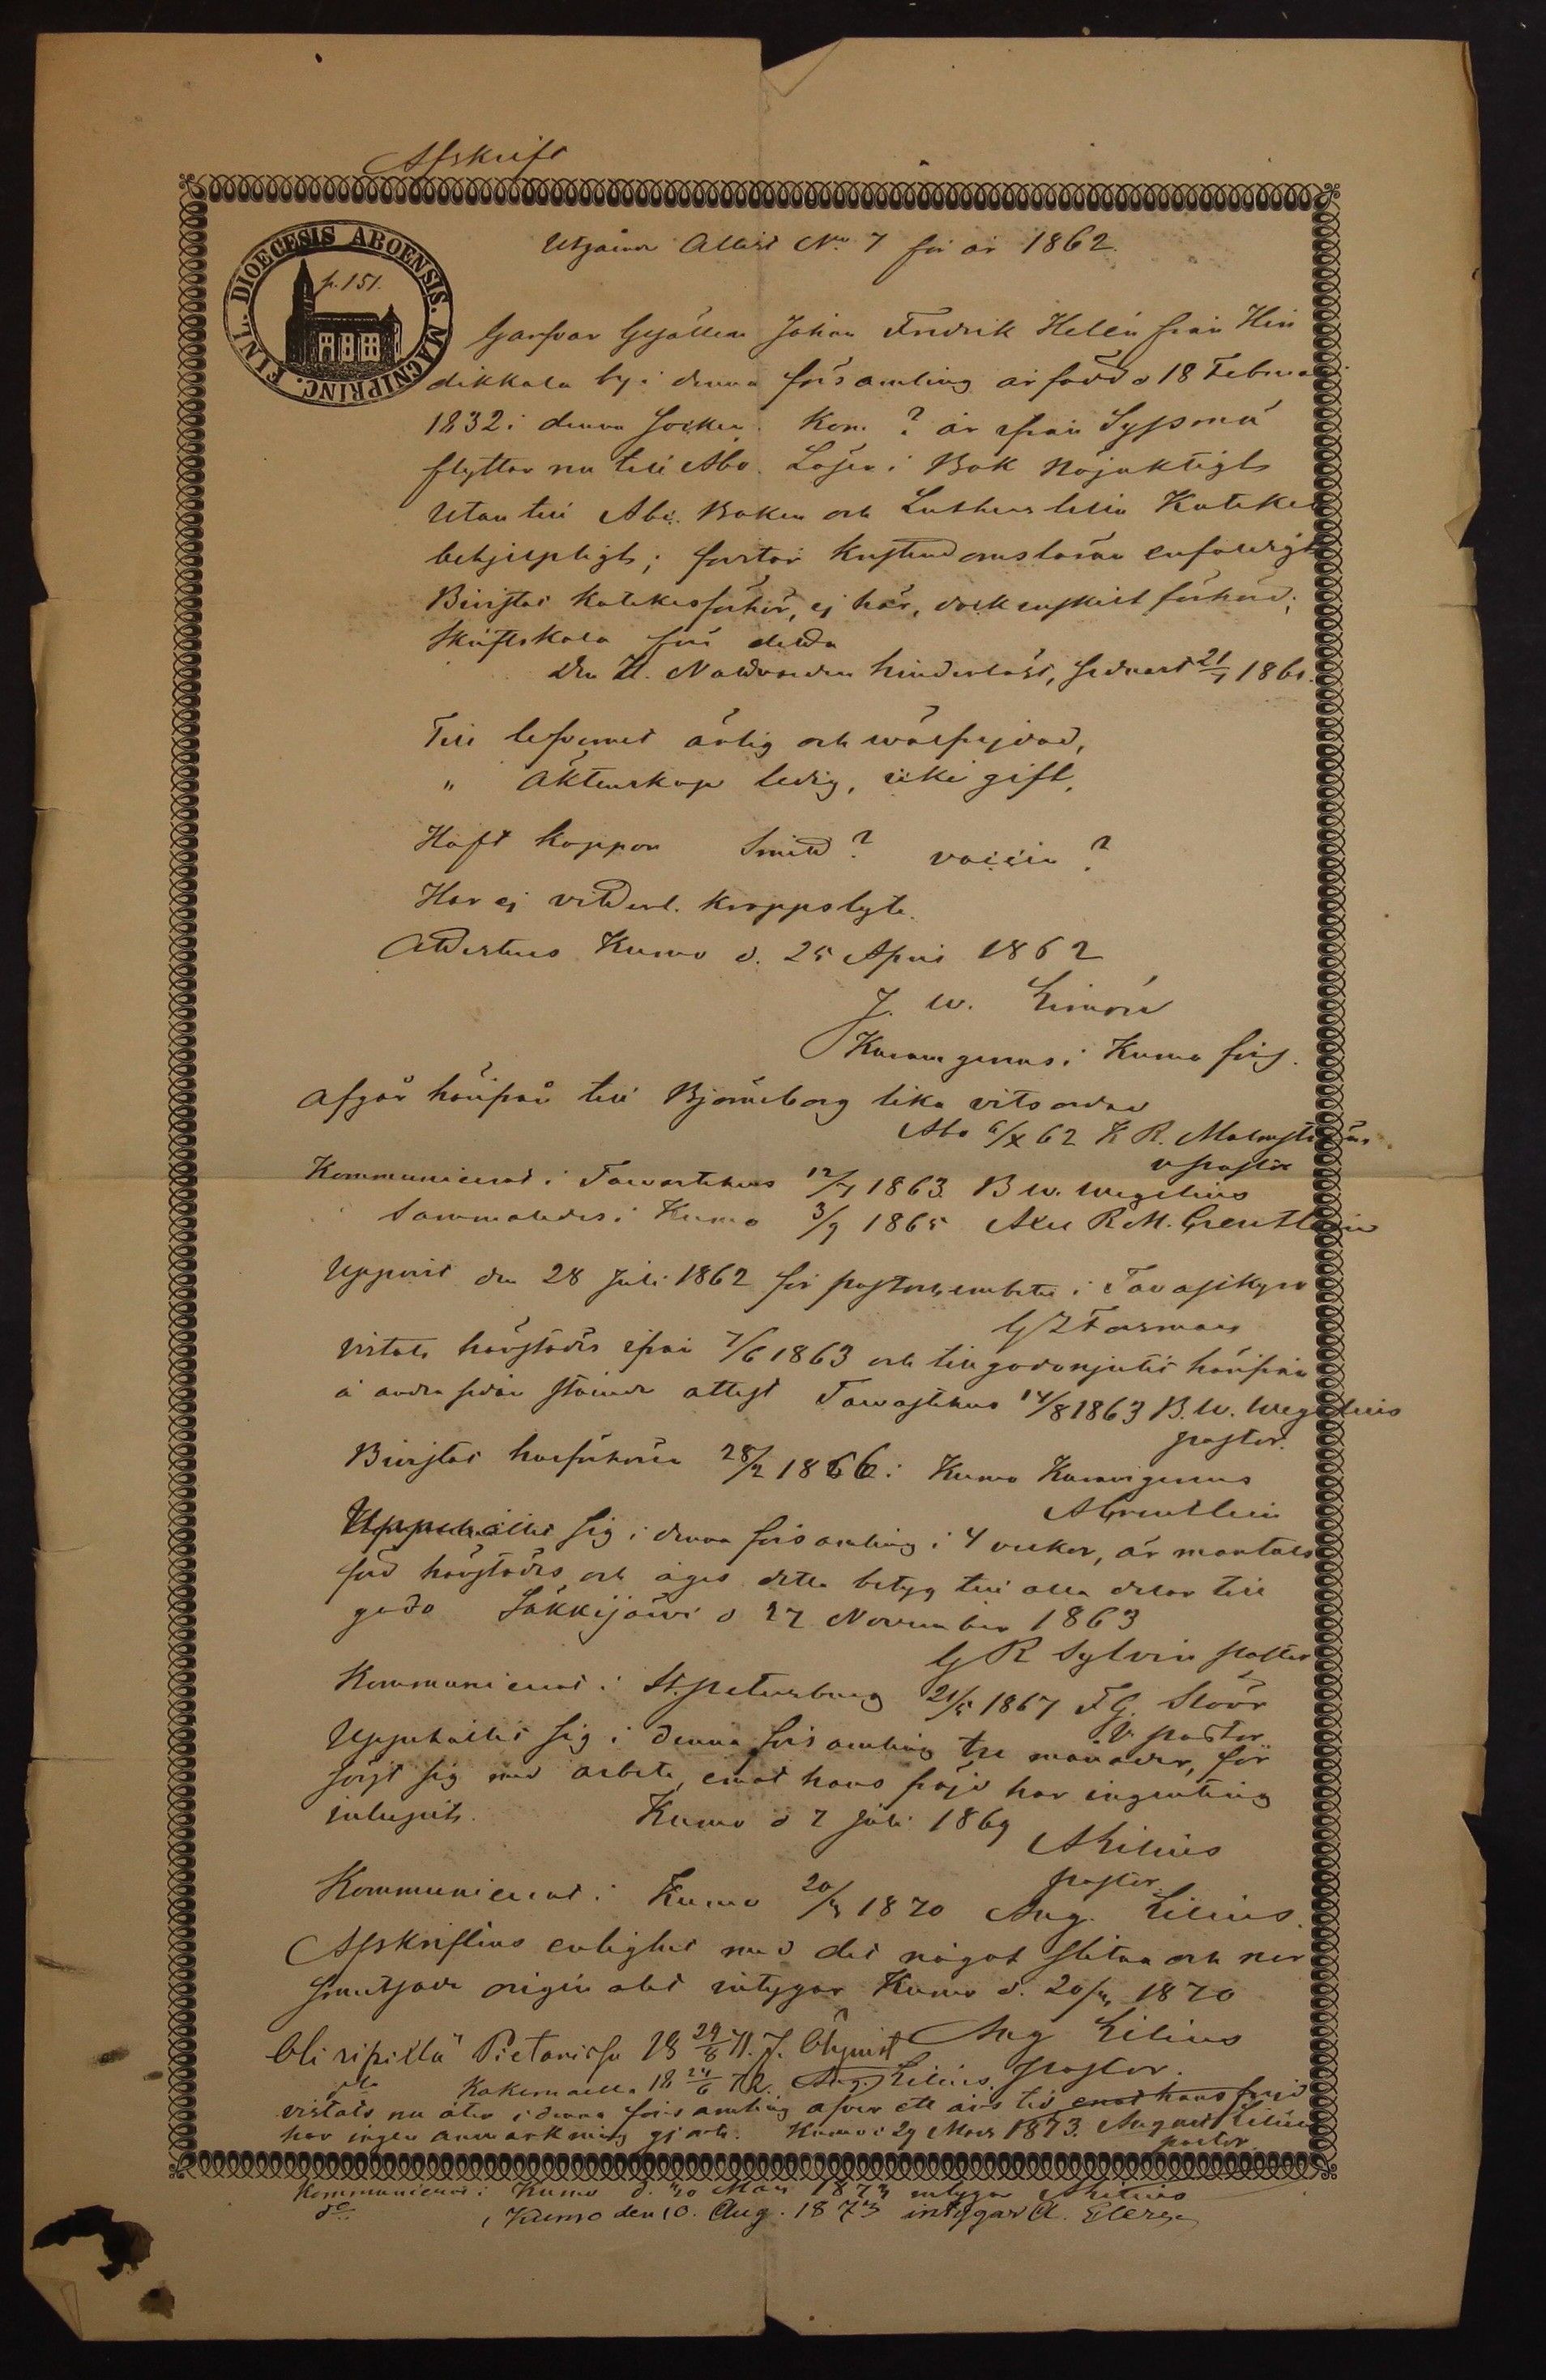 Afskrift
FINL. DIOECESIS ABOENSIS. MAGNIPRINC.
p. 151.
Utgående Attest No. 7 för år 1862.
Garfvar Gesällen Johan Fredrik Helén från Hin
dikkala by i denna församling är född d 18 Februari
1832 i denna Socken. Kom ? år ifrån Sysmä
flyttar nu till Åbo. Läser i Bok Nöjaktigt
Utan till Abc. Boken och Luthers lilla Katekes
behjelpligt; förstår Kristendomsläran enfaldigt
Bivistat Katekesförhör, ej här, dock enskilt förhörd;
Skriftskola före detta
Den H. Nattvarden hinderlöst, sednast 21/7 1861.
Till lefvernet ärlig och wälfrejdad,
" Äktenskap ledig, icke gift,
Haft koppor Smitt? vaccin?
Har ej vitterl. kroppslyte.
Attesteras Kumo d. 25 April 1862
J. W. Limón
Kavangenus i Kumo förs.
Afgår härifrån till Björneborg lika vitsordad
Åbo 6/X 62 K R. Malmström
v pastor
Kommunicerat i Tavastehus 12/7 1863 B W. Wegelius
Sammaledes i Kumo 3/9 1865 Axel R. M. Grentlein
Uppvist den 28 Juli 1862 för pastorsembetet i Tavastkyro
G Z Forsman
vistats härstädes ifrån 7/6 1863 och till godo njutit härifrån
å andra sidan stående attest Tawastehus 14/8 1863 B. W. Wegelius
pastor.
Bivistat husförhöret 28/2 1866 i Kumo
A Grentlein
Uppehållit sig i denna församling i 4 veckor, är mantals
förd härstädes och äger detta betyg till alla delar till
godo Säkkijärvi d 27 November 1863
G R Sylvin pastor
Kommunicerat i St. Petersburg 21/5 1867 F G. Sköör
V. Pastor.
Uppehållit sig i denna församling tre månader, för
sörjt sig med arbete, emot hans fräjd har ingenting
inlupit. Kumo d 7 Juli 1869
A Lilius
pastor.
Kommunicerat i Kumo 20/3 1870 Aug. Lilius.
Afskriftens enlighet med det något slitna och ner
smutsade originalet intygar Kumo d. 20/3 1870
Aug Lilius
pastor.
Oli ripillä Pietarissa 18 29/8 71. J. Öhqvist
Kakemaella 18 24/6 72. Aug. Lilius.
vistats nu åter i denna församling öfver ett års tid emot hans frejd
har ingen anmärkning gjorts. Kumo d 29 Mars 1873. August Lilius
pastor
Kommunicerat i Kumo d. 30 Mars 1873 intygar A Lilius
do i Kumo den 10. Aug. 1873 intygar A.